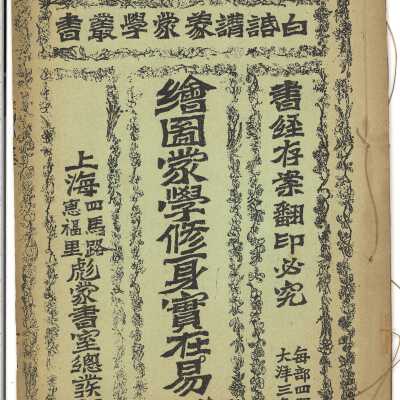 白話蒙學叢書
書經存案翻印必究
每部四
大洋三
繪圖蒙學修身實在易
上海四馬路惠福里彪蒙書室總發